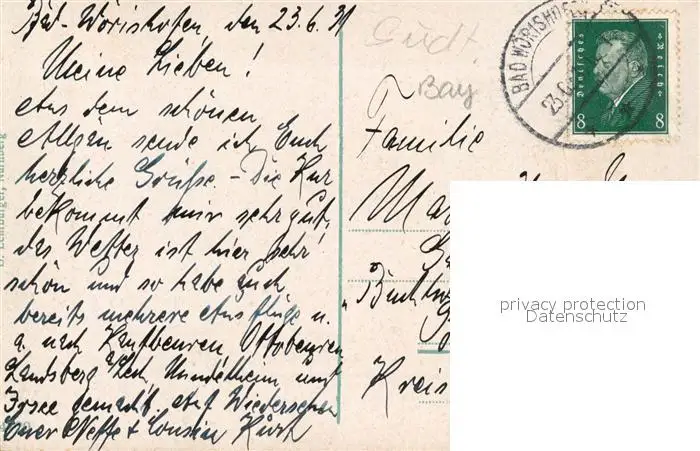 Bad-Wörishofen, den 23.6.31
Meine Lieben!
Aus dem schönen
Allgäu sende ich Euch
herzliche Grüße. - Die Kur
bekommt mir sehr gut,
das Wetter ist hier sehr
schön und so habe auch
bereits mehrere Ausflüge u.
a. nach Kaufbeuren, Ottobeuren,
Landsberg Lech, Mindelheim und
Irsee gemacht. Auf Wiedersehen
Euer Neffe + Cousin Kurt
Südd.
Bay
BAD WÖRISHOFEN
23.6.
Deutsches Reich
8 8
Familie
Ma
Kreis
privacy protection
Datenschutz
Nürnberg